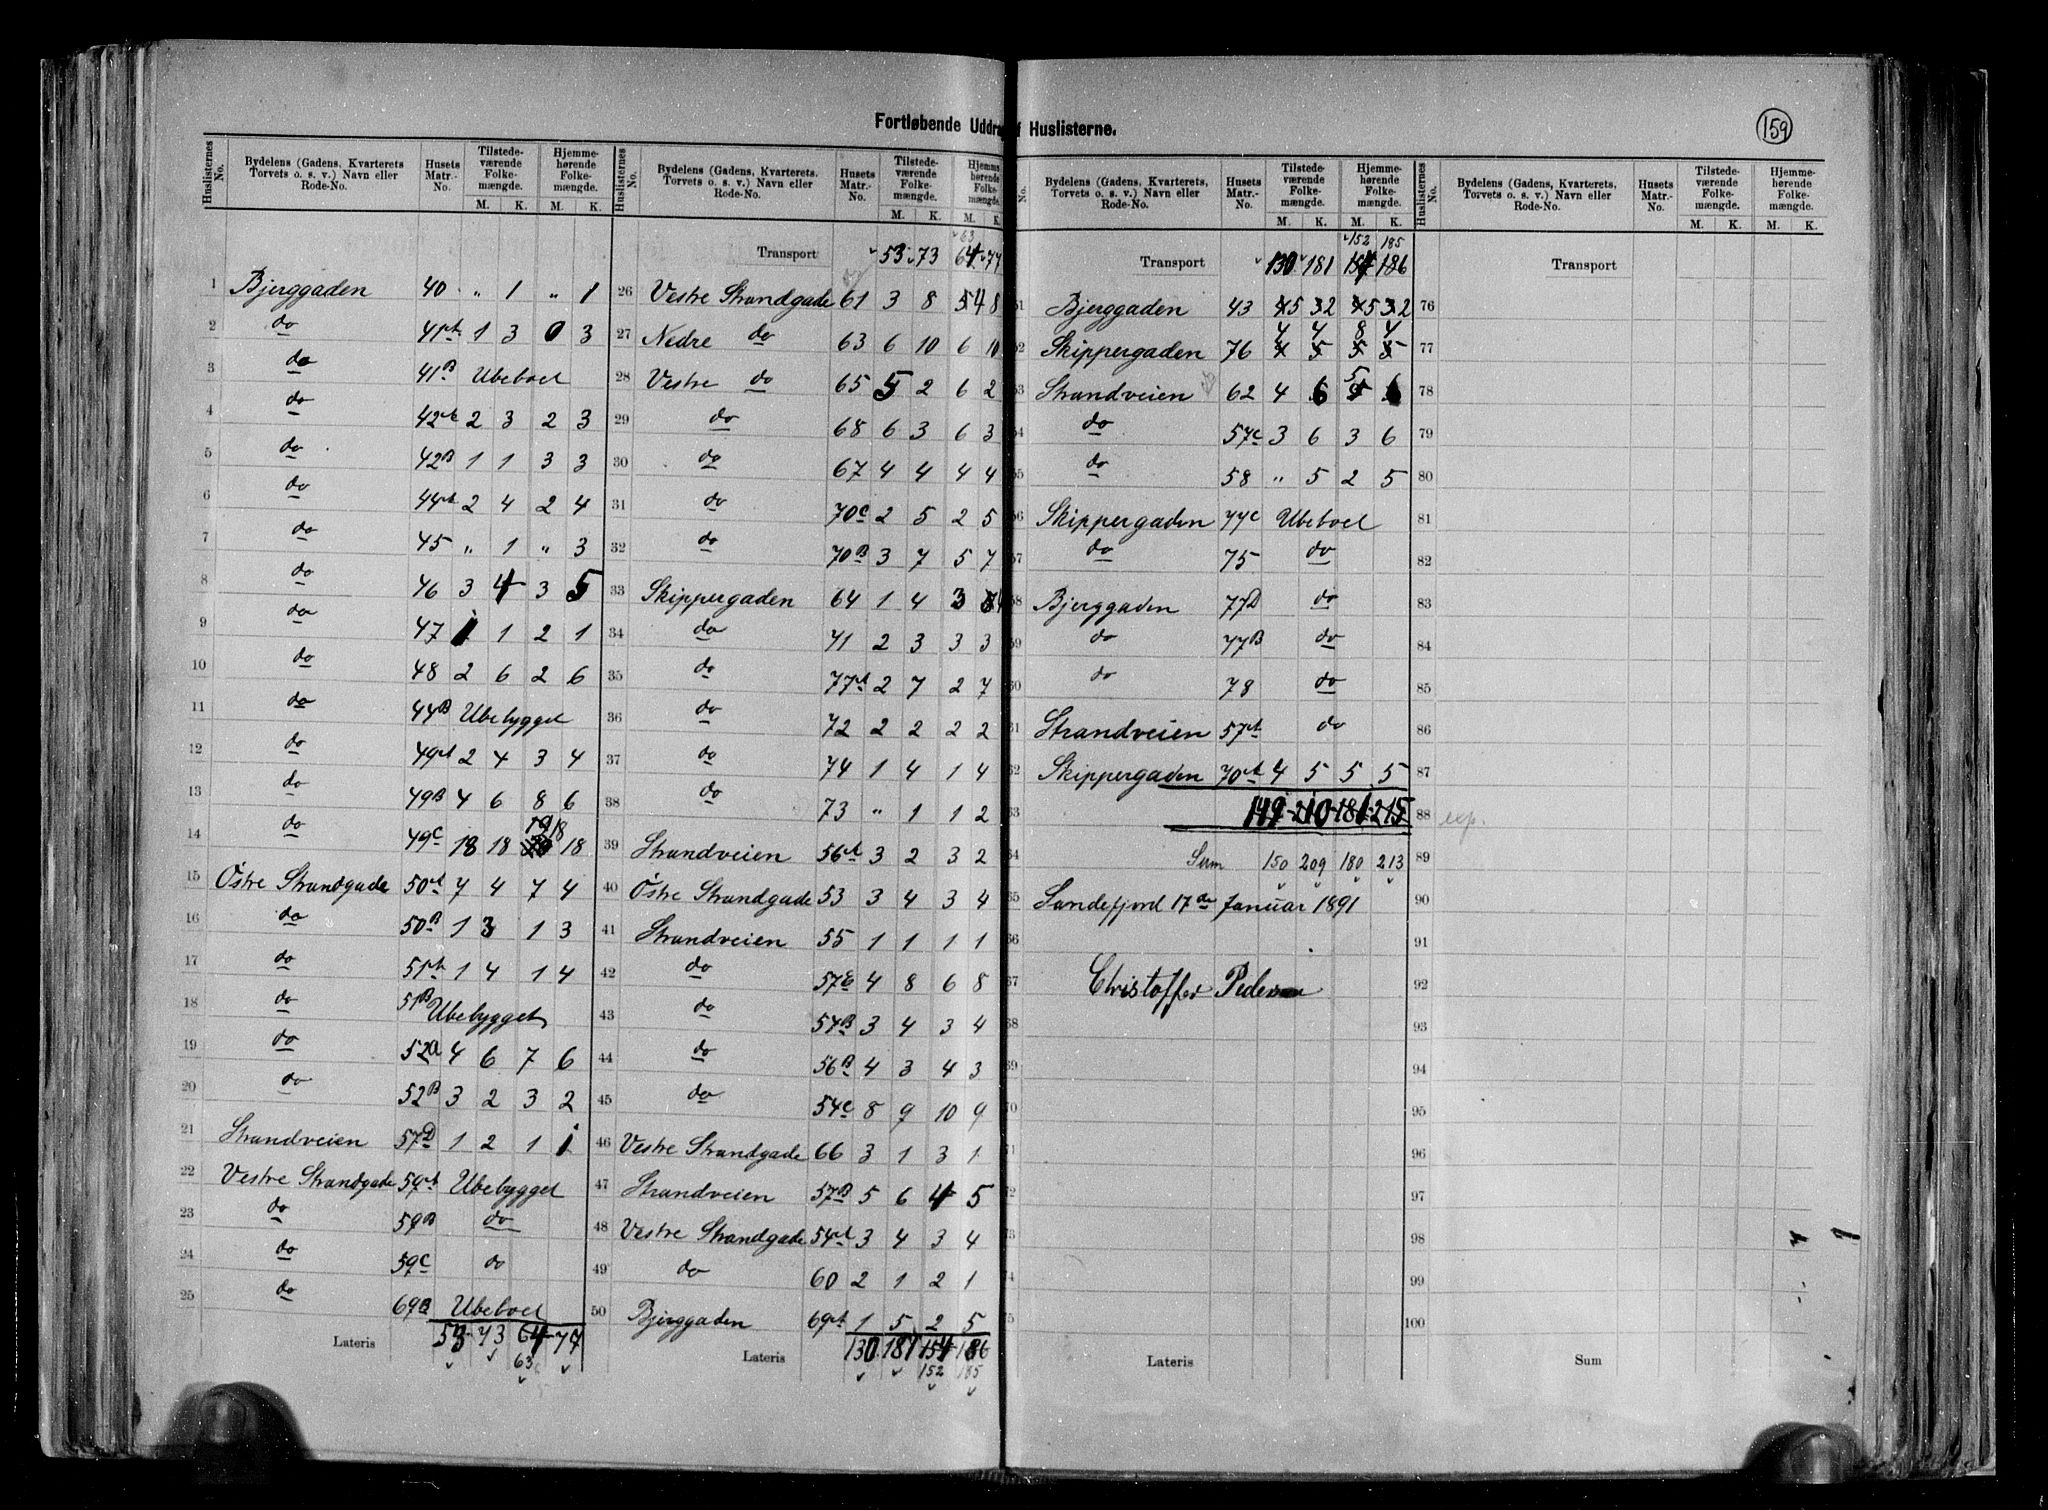 159
Fortløbende Uddra f Huslisterne.
Huslisternes No. Bydelens (Gadens, Kvarterets Torvets o. s. v.) Navn eller Rode-No. Husets Matr.-No. Tilstede-værende Folke-mængde. M. K. Hjemme-hørende Folke-mængde. M. K.
1 Bjerggaden 40 „ 1 „ 1
2 do 41A 1 3 0 3
3 do 41B Ubeboet
4 do 42A 2 3 2 3
5 do 42B 1 1 3 3
6 do 44A 2 4 2 4
7 do 45 „ 1 „ 3
8 do 46 3 4 3 5
9 do 47 1 1 2 1
10 do 48 2 6 2 6
11 do 44B Ubebygget
12 do 49A 2 4 3 4
13 do 49B 4 6 8 6
14 do 49C 18 18 19 18 18
15 Östre Strandgade 50A 7 4 7 4
16 do 50B 1 3 1 3
17 do 51A 1 4 1 4
18 do 51B Ubebygget
19 do 52a 4 6 7 6
20 do 52B 3 2 3 2
21 Strandveien 57D 1 2 1 1
22 Vestre Strandgade 59A Ubebygget
23 do 59B do
24 do 59C do
25 do 69B Ubeboet
Lateris 53 73 64 77
63
Huslisternes No. Bydelens (Gadens, Kvarterets, Torvets o. s. v.) Navn eller Rode-No. Husets Matr.-No. Tilstede-værende Folke-mængde. M. K. Hjemme hørende Folke-mængde. M. K.
63
Transport 53 73 64 77
26 Vestre Strandgade 61 3 8 5 4 8
27 Nedre do 63 6 10 6 10
28 Vestre do 65 5 2 6 2
29 do 68 6 3 6 3
30 do 67 4 4 4 4
31 do 70C 2 5 2 5
32 do 70B 3 7 5 7
33 Skippergaden 64 1 4 3 4
34 do 71 2 3 3 3
35 do 77A 2 7 2 7
36 do 72 2 2 2 2
37 do 74 1 4 1 4
38 do 73 „ 1 1 2
39 Strandveien 56A 3 2 3 2
40 Östre Strandgade 53 3 4 3 4
41 Strandveien 55 1 1 1 1
42 do 57E 4 8 6 8
43 do 54B 3 4 3 4
44 do 56B 4 3 4 3
45 do 54C 8 9 10 9
46 Vestre Strandgade 66 3 1 3 1
47 Strandveien 57B 5 6 4 5
48 Vestre Strandgade 54A 3 4 3 4
49 do 60 2 1 2 1
50 Bjerggaden 69A 1 5 2 5
Lateris 130 181 154 186
152 185
No. Bydelens (Gadens, Kvarterets, Torvets o. s. v.) Navn eller Rode-No. Husets Matr.-No. Tilstede-værende Folke-mængde. M. K. Hjemme-hørende Folke-mængde. M. K.
152 185
Transport 130 181 154 186
51 Bjerggaden 43 4 5 3 2 4 5 3 2
4 4 8 4
52 Skippergaden 76 4 5 5 5
53 Strandveien 62 4 6 5 6
54 do 57C 3 6 3 6
55 do 58 „ 5 2 5
56 Skippergaden 77C Ubeboet
57 do 75 do
58 Bjerggaden 77D do
59 do 77B do
60 do 78 do
61 Strandveien 57A do
62 Skippergaden 70A 4 5 5 5
63 149 210 181 215
64 Sum 150 209 180 213
65 Sandefjord 17de Januar 1891
66
67 Christoffer Pedersen
68
69
70
71
72
73
74
75
Lateris
Huslisternes No. Bydelens (Gadens, Kvarterets, Torvets o. s. v.) Navn eller Rode-No. Husets Matr.-No. Tilstede-værende Folke-mængde. M. K. Hjemme-hørende Folke-mængde. M. K.
Transport
76
77
78
79
80
81
82
83
84
85
86
87
88
89
90
91
92
93
94
95
96
97
98
99
100
Sum